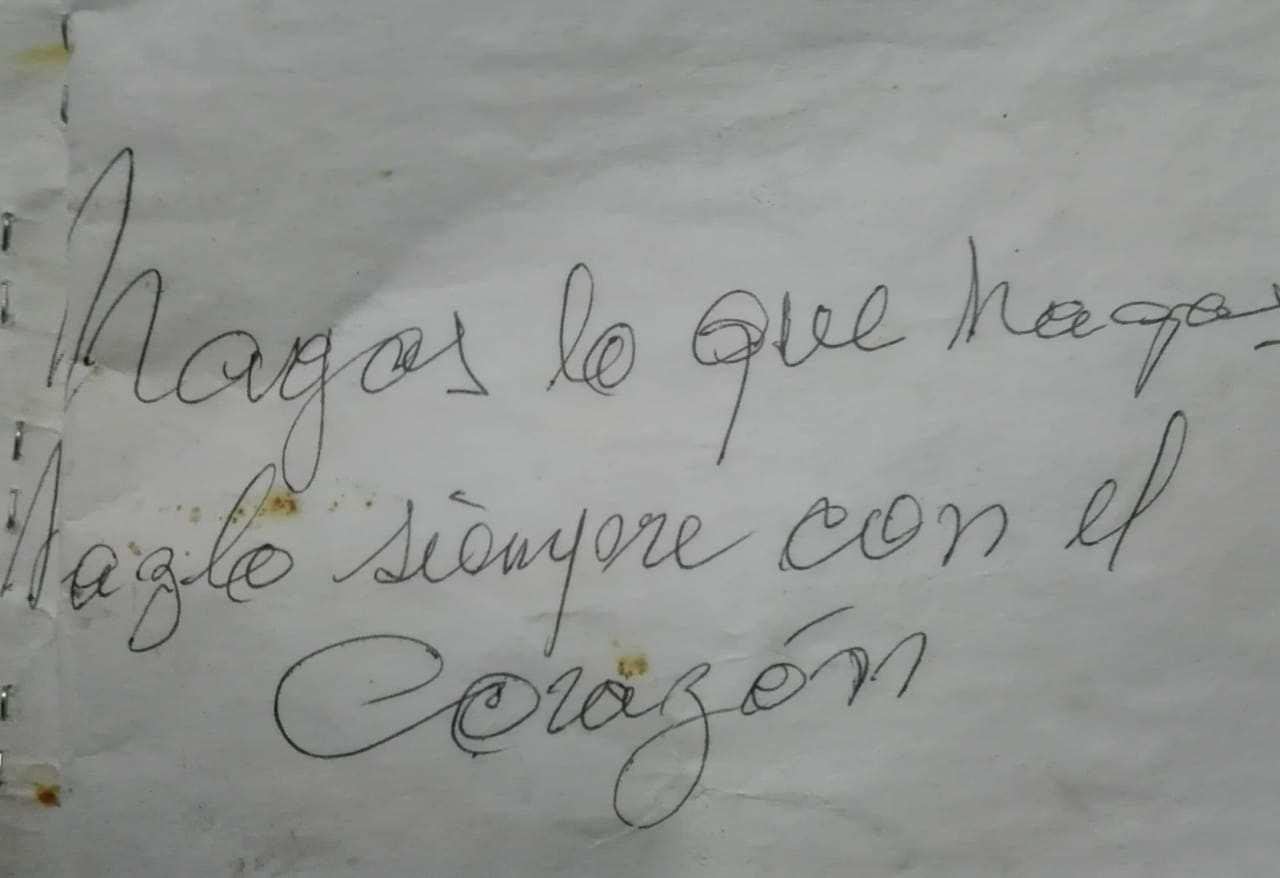 Hagas lo que hagas
Hazlo siempre con el
Corazón